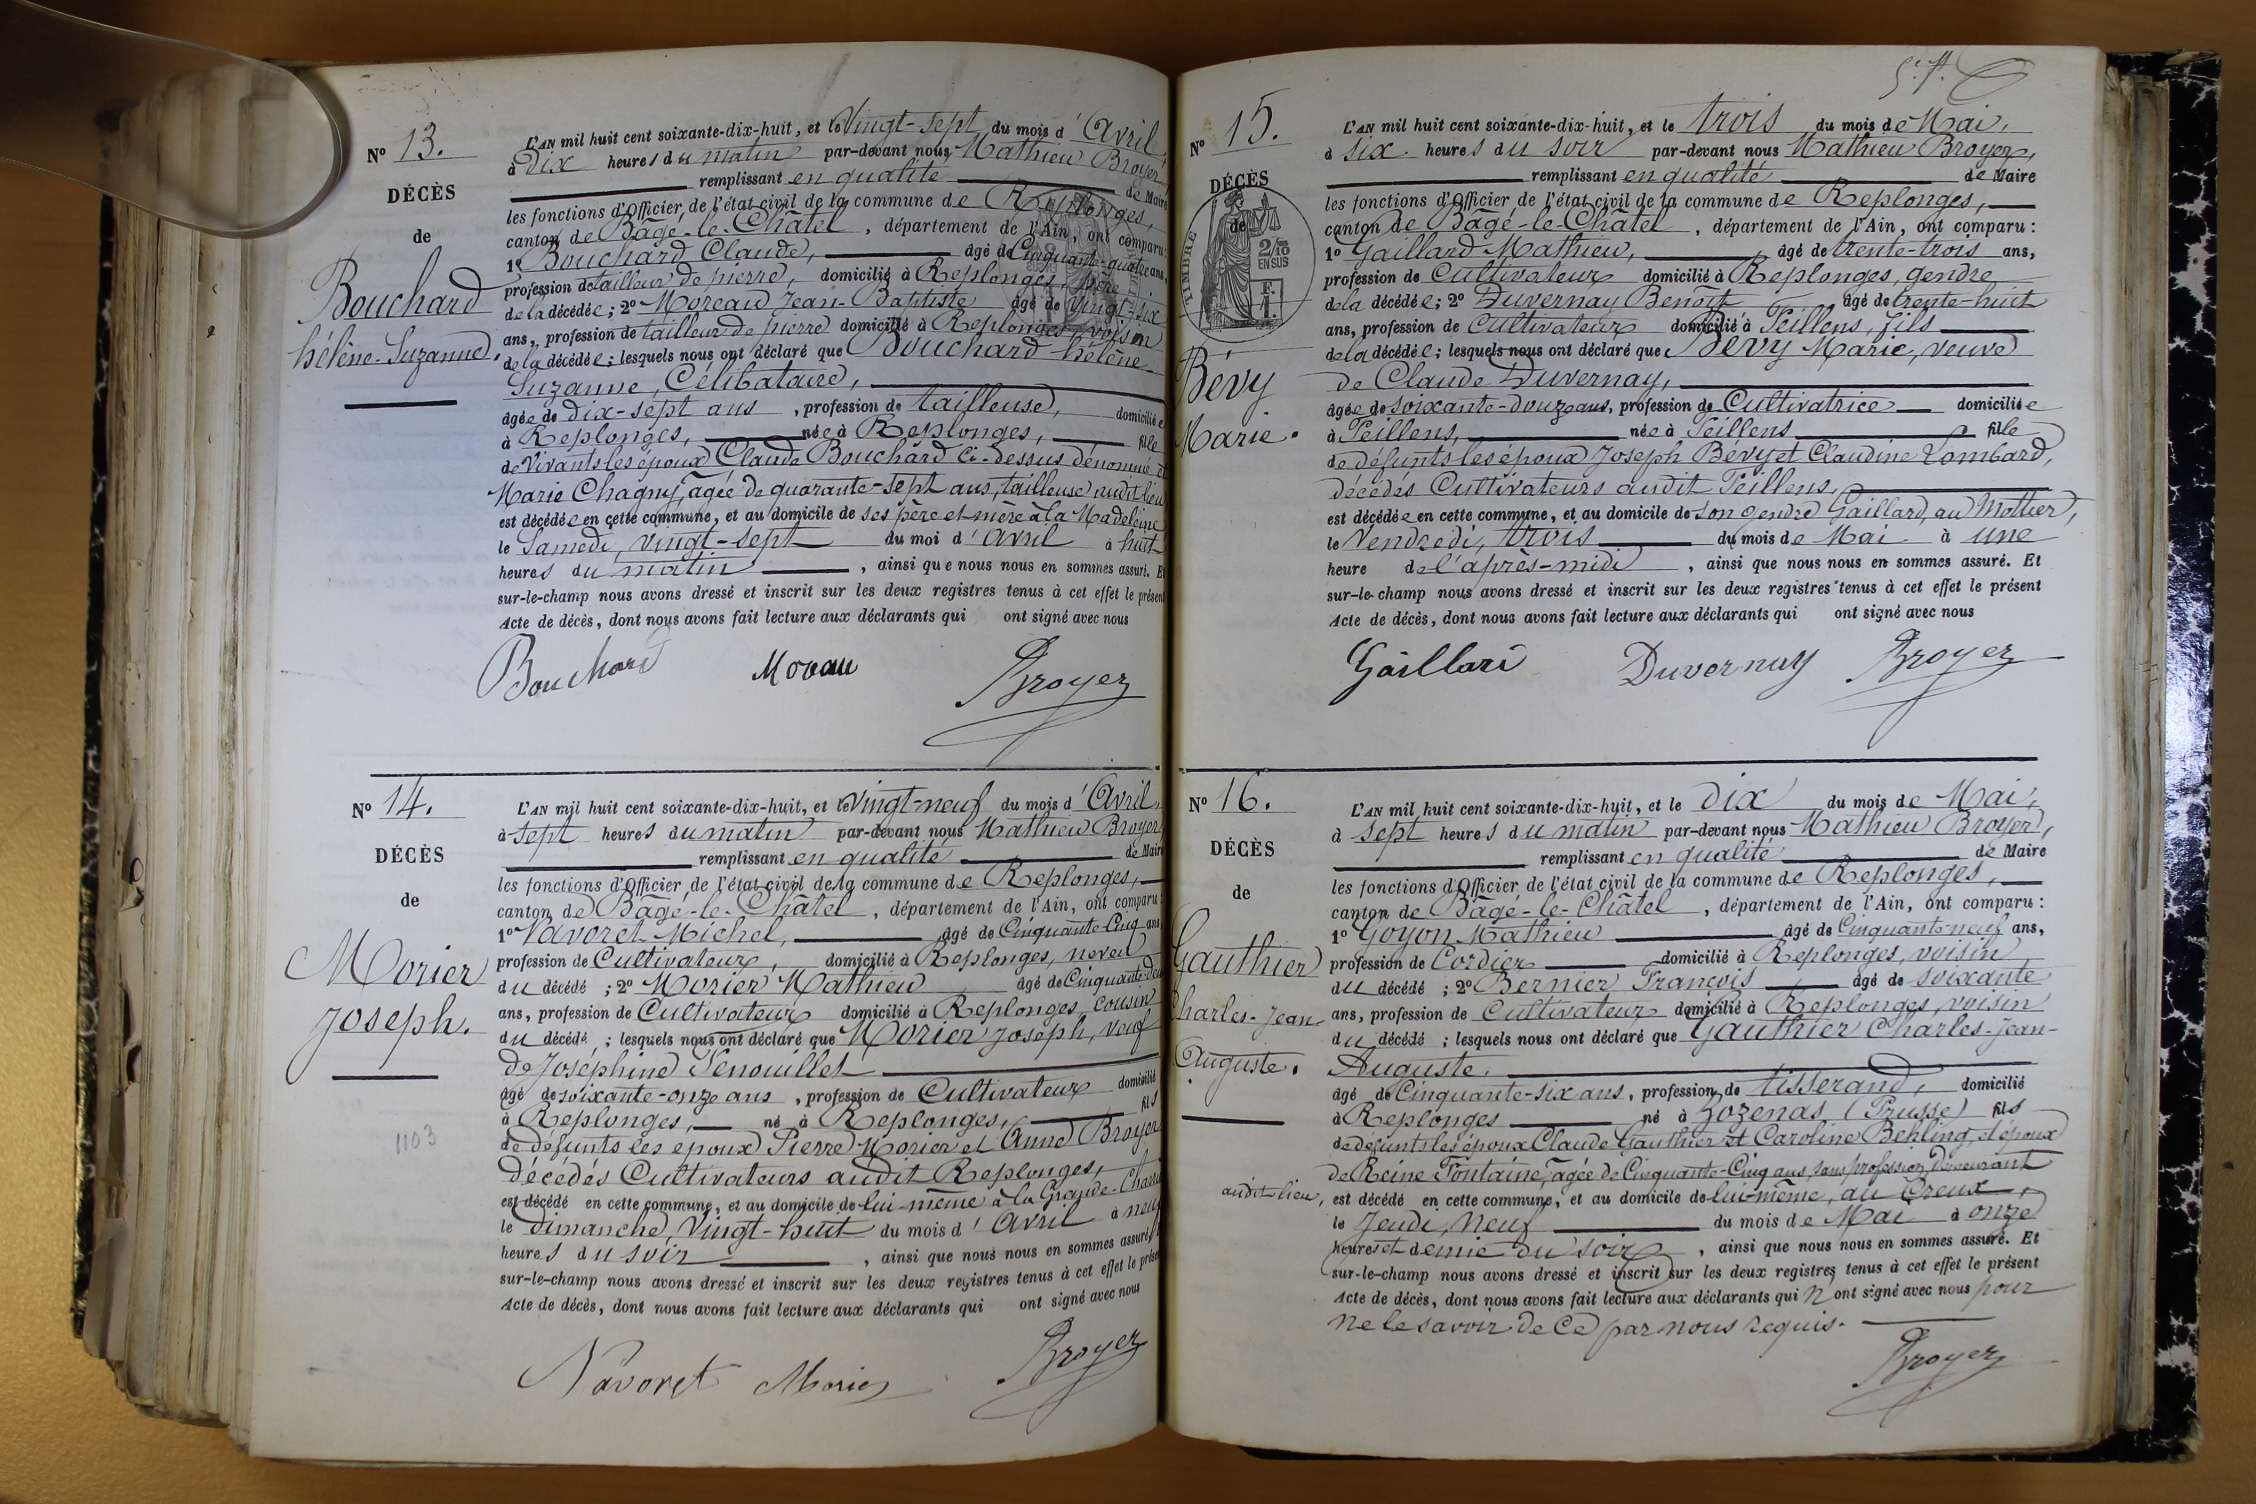 Nº 13.
DÉCÈS
de
Bouchard
hélène-Suzanne.
L'AN mil huit cent soixante-dix-huit, et le Vingt-sept du mois d'Avril,
à dix heures du matin par-devant nous Mathieu Broyer,
remplissant en qualité de Maire
les fonctions d'Officier de l'état civil de la commune de Replonges,
canton de Bâgé-le-Châtel, département de l'Ain, ont comparu :
1º Bouchard Claude, âgé de Cinquante-quatre ans,
profession de tailleur de pierre, domicilié à Replonges, père
de la décédée ; 2º Moreau Jean-Baptiste âgé de vingt-six
ans, profession de tailleur de pierre domicilié à Replonges voisin
de la décédée ; lesquels nous ont déclaré que Bouchard hélène-
Suzanne, Célibataire,
âgée de dix-sept ans, profession de tailleuse, domiciliée
à Replonges, née à Replonges, fille
de Vivants les époux Claude Bouchard Ci-dessus dénommé et
Marie Chagny, âgée de quarante-sept ans, tailleuse audit lieu
est décédée en cette commune, et au domicile de ses père et mère à la Madeleine
le Samedi, vingt-sept du moi d'Avril à huit
heures du matin, ainsi que nous nous en sommes assuré. Et
sur-le-champ nous avons dressé et inscrit sur les deux registres tenus à cet effet le présent
Acte de décès, dont nous avons fait lecture aux déclarants qui ont signé avec nous
Bouchard Moreau Broyer
Nº 14.
DÉCÈS
de
Morier
Joseph.
1103
L'AN mil huit cent soixante-dix-huit, et le Vingt-neuf du mois d'Avril,
à sept heures du matin par-devant nous Mathieu Broyer
remplissant en qualité de Maire
les fonctions d'Officier de l'état civil de la commune de Replonges,
canton de Bâgé-le-Châtel, département de l'Ain, ont comparu :
1º Navoret Michel, âgé de Cinquante-Cinq ans
profession de Cultivateur, domicilié à Replonges, neveu
du décédé ; 2º Morier Mathieu âgé de Cinquante-deux
ans, profession de Cultivateur domicilié à Replonges cousin
du décédé ; lesquels nous ont déclaré que Morier Joseph, veuf
de Joséphine Penouillet
âgé de soixante-onze ans, profession de Cultivateur domicilié
à Replonges, né à Replonges, fils
de défunts les époux Pierre Morier et Anne Broyer
décédés Cultivateurs audit Replonges,
est décédé en cette commune, et au domicile de lui-même à la Grande-Charrière
le dimanche, Vingt-huit du mois d'Avril à neuf
heures du soir, ainsi que nous nous en sommes assuré. Et
sur-le-champ nous avons dressé et inscrit sur les deux registres tenus à cet effet le présent
Acte de décès, dont nous avons fait lecture aux déclarants qui ont signé avec nous
Navoret Morier Broyer
Nº 15.
DÉCÈS
de
TIMBRE
2/10
EN SUS
F.
1.
Bévy
Marie.
L'AN mil huit cent soixante-dix-huit, et le trois du mois de Mai,
à six heures du soir par-devant nous Mathieu Broyer,
remplissant en qualité de Maire
les fonctions d'Officier de l'état civil de la commune de Replonges,
canton de Bâgé-le-Châtel, département de l'Ain, ont comparu :
1º Gaillard Mathieu, âgé de trente-trois ans,
profession de Cultivateur domicilié à Replonges, gendre
de la décédée ; 2º Duvernay Benoît âgé de trente-huit
ans, profession de Cultivateur domicilié à Feillens, fils
de la décédée ; lesquels nous ont déclaré que Bévy Marie, veuve
de Claude Duvernay,
âgée de soixante-douze ans, profession de Cultivatrice domiciliée
à Feillens, née à Feillens fille
de défunts les époux Joseph Bévy et Claudine Lombard,
décédés Cultivateurs audit Feillens,
est décédée en cette commune, et au domicile de son gendre Gaillard, au Mottier,
le Vendredi, trois du mois de Mai à une
heure de l'après-midi, ainsi que nous nous en sommes assuré. Et
sur-le-champ nous avons dressé et inscrit sur les deux registres tenus à cet effet le présent
Acte de décès, dont nous avons fait lecture aux déclarants qui ont signé avec nous
Gaillard Duvernay Broyer
Nº 16.
DÉCÈS
de
Gauthier
Charles-Jean-
Auguste.
audit lieu,
L'AN mil huit cent soixante-dix-huit, et le dix du mois de Mai,
à sept heures du matin par-devant nous Mathieu Broyer,
remplissant en qualité de Maire
les fonctions d'Officier de l'état civil de la commune de Replonges,
canton de Bâgé-le-Châtel, département de l'Ain, ont comparu :
1º Goyon Mathieu âgé de Cinquante-neuf ans,
profession de Cordier domicilié à Replonges, voisin
du décédé ; 2º Bernier François âgé de soixante
ans, profession de Cultivateur domicilié à Replonges, voisin
du décédé ; lesquels nous ont déclaré que Gauthier Charles-Jean-
Auguste,
âgé de Cinquante-six ans, profession de tisserand, domicilié
à Replonges né à Gozenas (Prusse) fils
de défunts les époux Claude Gauthier et Caroline Behling, et époux
de Reine Fontaine, âgée de Cinquante-Cinq ans, sans profession, demeurant
est décédé en cette commune, et au domicile de lui-même, au Creux,
le Jeudi, neuf du mois de Mai à onze
heures et demie du soir, ainsi que nous nous en sommes assuré. Et
sur-le-champ nous avons dressé et inscrit sur les deux registres tenus à cet effet le présent
Acte de décès, dont nous avons fait lecture aux déclarants qui n'ont signé avec nous pour
ne le savoir de Ce par nous requis.
Broyer